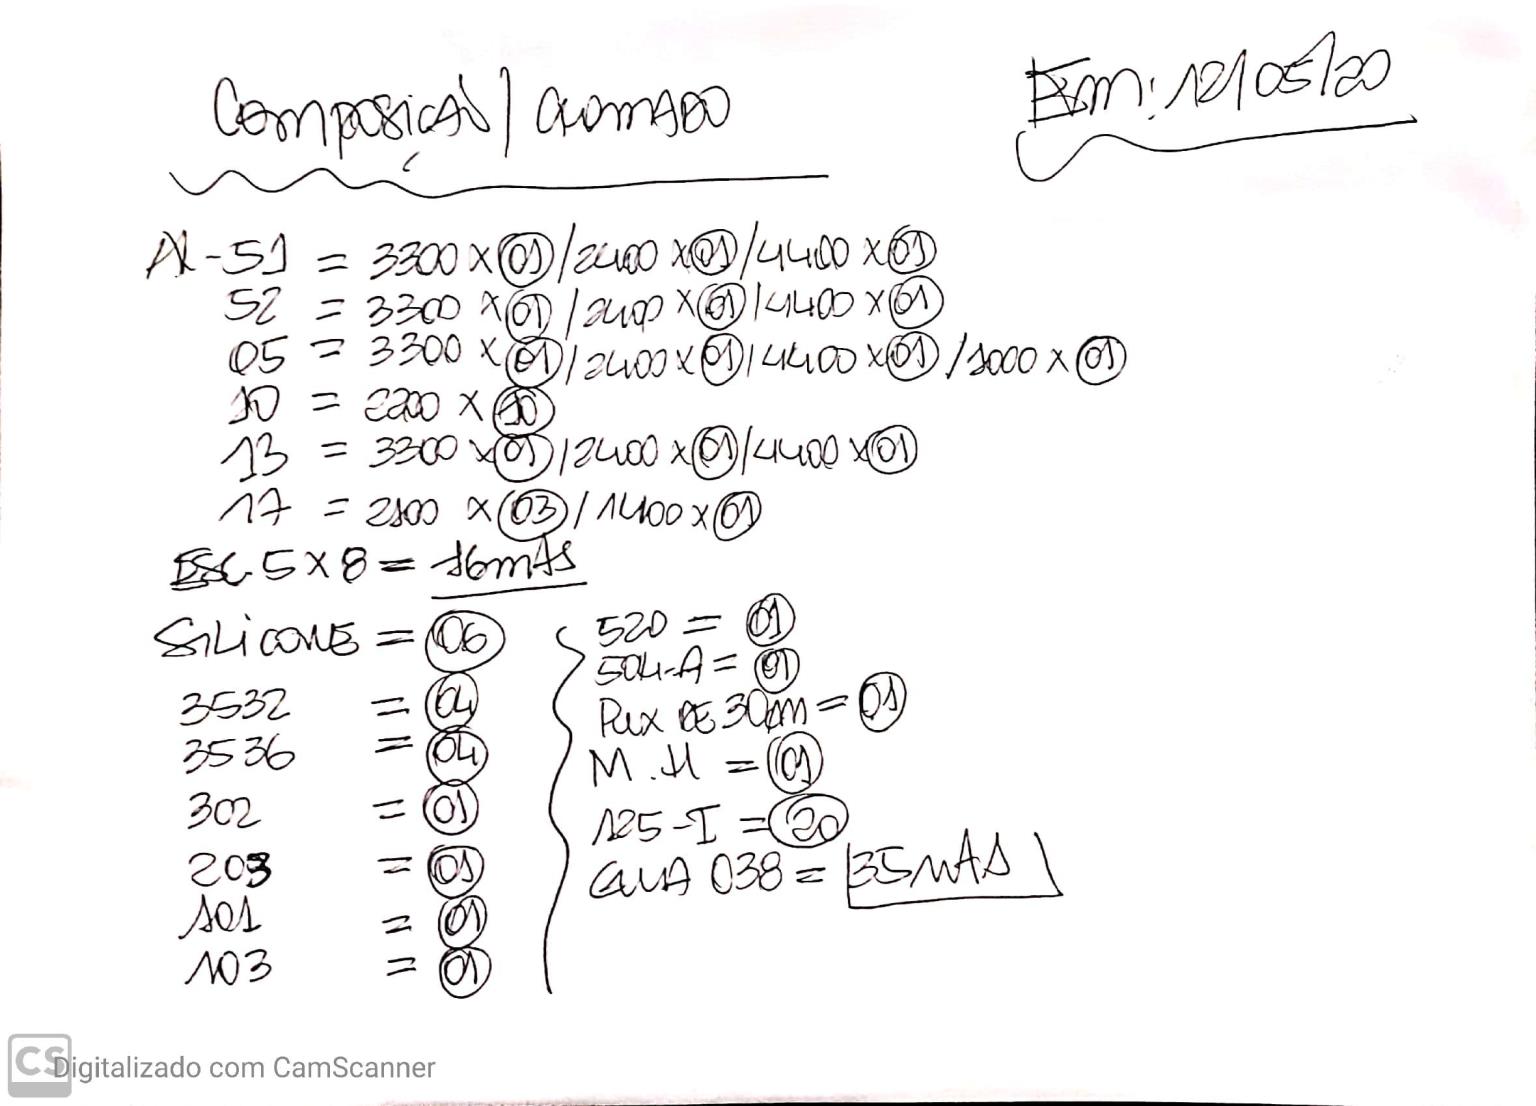 Composição / CROMADO
Em: 12/05/20
Al-51 = 3300 x 01 / 2400 x 01 / 4400 x 01
52 = 3300 x 01 / 2400 x 01 / 4400 x 01
05 = 3300 x 01 / 2400 x 01 / 4400 x 01 / 1000 x 01
10 = 2200 x 10
13 = 3300 x 01 / 2400 x 01 / 4400 x 01
17 = 2100 x 03 / 1400 x 01
ESC. 5 x 8 = 16 mts
SILICONE = 06
3532 = 04
3536 = 04
302 = 01
203 = 01
101 = 01
103 = 01
520 = 01
504-A = 01
Pux DE 30cm = 01
M.H = 01
125-I = 20
GUA 038 = 35 mts
CS Digitalizado com CamScanner